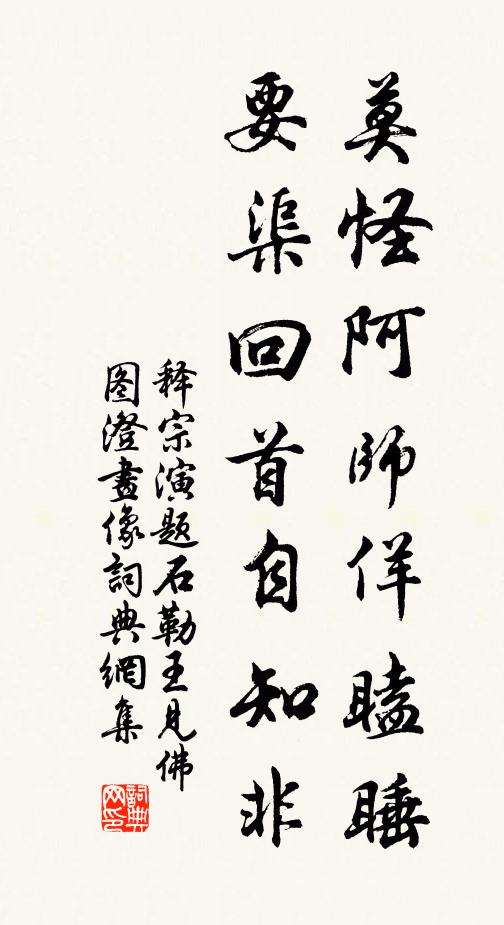 莫怪阿師佯瞌睡
要渠回首自知非
释宗演题石勒王見佛
图澄畫像詞典網集
詞典网印